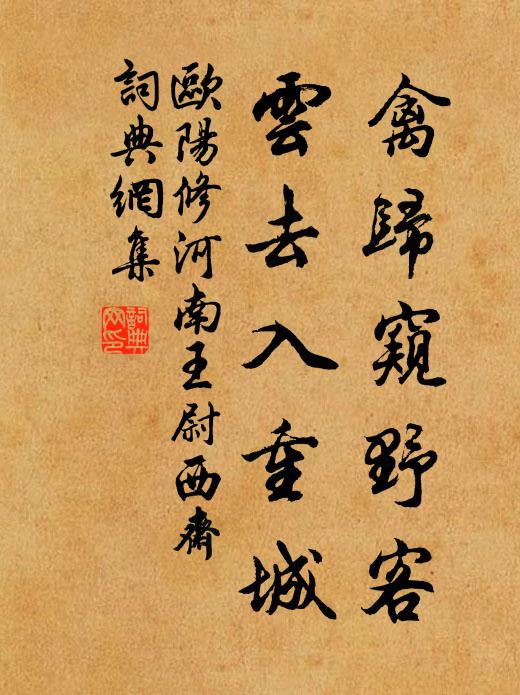 禽歸窺野客
雲去入重城
歐陽修河南王尉西齋
詞典網集
詞典网印